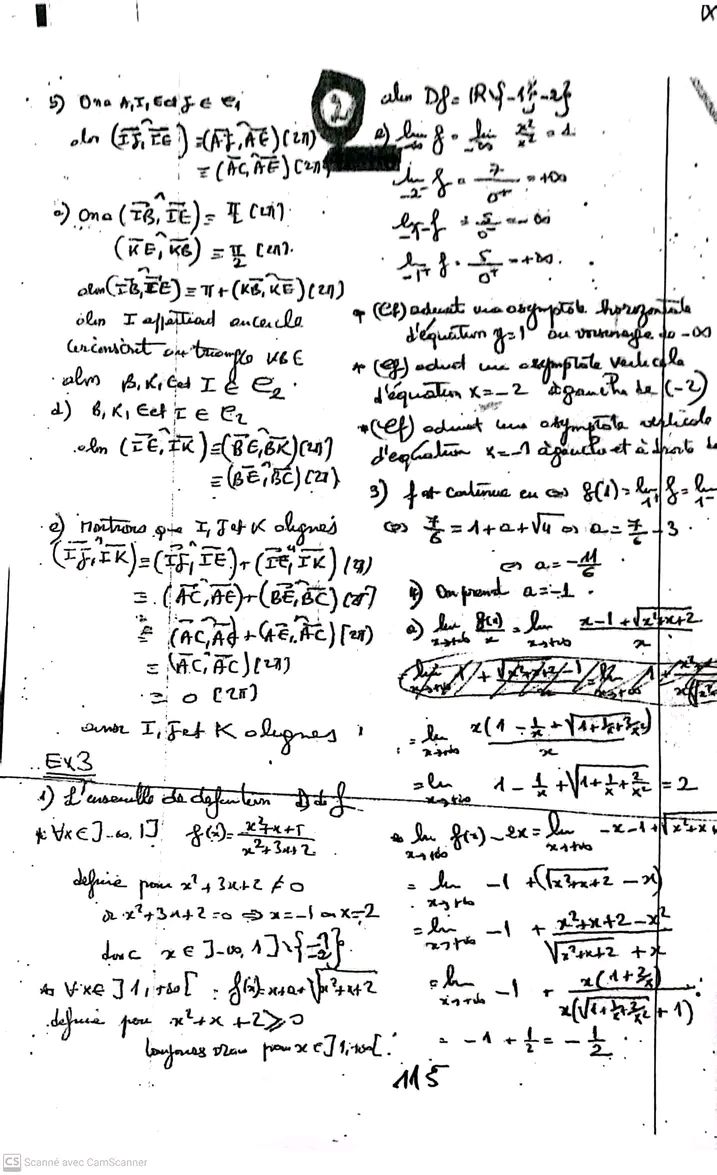 2
5) On a A, I, E et J ∈ C₁
alors (IJ, IE) ≡ (AJ, AE) [2π]
≡ (AC, AE) [2π]
c) On a (IB, IE) = π/2 [2π].
(KE, KB) ≡ π/2 [2π].
alors (IB, IE) ≡ π + (KB, KE) [2π]
alors I appartient au cercle
circonscrit au triangle KBE
alors B, K, E et I ∈ C₂.
d) B, K, E et I ∈ C₂
alors (IE, IK) ≡ (BE, BK) [2π]
≡ (BE, BC) [2π]
e) Montrons que I, J et K alignés
(IJ, IK) ≡ (IJ, IE) + (IE, IK) [2π]
≡ (AC, AE) + (BE, BC) [2π]
≡ (AC, AE) + (AE, AC) [2π]
≡ (AC, AC) [2π]
≡ 0 [2π]
ainsi I, J et K alignés
Ex3
1) L'ensemble de définition D de f
* ∀x ∈ ]-∞, 1] f(x) = x²+x+5 / x²+3x+2
définie pour x²+3x+2 ≠ 0
or x²+3x+2 = 0 ⇒ x = -1 ou x = -2
donc x ∈ ]-∞, 1] \ {-1, -2}
* ∀x ∈ ]1, +∞[ : f(x) = x+a+√x²+x+2
définie pour x²+x+2 ≥ 0
toujours vrai pour x ∈ ]1, +∞[.
alors Df = IR \ {-1, -2}
2) lim -∞ f = lim -∞ x²/x² = 1
lim -2⁻ f = 7/0⁺ = +∞
lim -1⁻ f = 5/0⁻ = -∞
lim -1⁺ f = 5/0⁺ = +∞.
* (Cf) admet une asymptote horizontale
d'équation y = 1 au voisinage de -∞
* (Cf) admet une asymptote verticale
d'équation x = -2 à gauche de (-2)
* (Cf) admet une asymptote verticale
d'équation x = -1 à gauche et à droite de
3) f est continue en ⇔ f(1) = lim 1⁺ f = lim 1⁻
⇔ 7/6 = 1+a+√4 ⇔ a = 7/6 - 3
⇔ a = -11/6
4) On prend a = -1.
a) lim x→+∞ f(x)/x = lim x→+∞ x-1+√x²+x+2 / x
= lim x→+∞ x(1 - 1/x + √1+1/x+2/x²) / x
= lim x→+∞ 1 - 1/x + √1+1/x+2/x² = 2
* lim x→+∞ f(x) - 2x = lim x→+∞ -x-1+√x²+x+
= lim x→+∞ -1 + (√x²+x+2 - x)
= lim x→+∞ -1 + x²+x+2-x² / √x²+x+2 + x
= lim x→+∞ -1 + x(1+2/x) / x(√1+1/x+2/x² + 1)
= -1 + 1/2 = -1/2
115
CS Scanné avec CamScanner